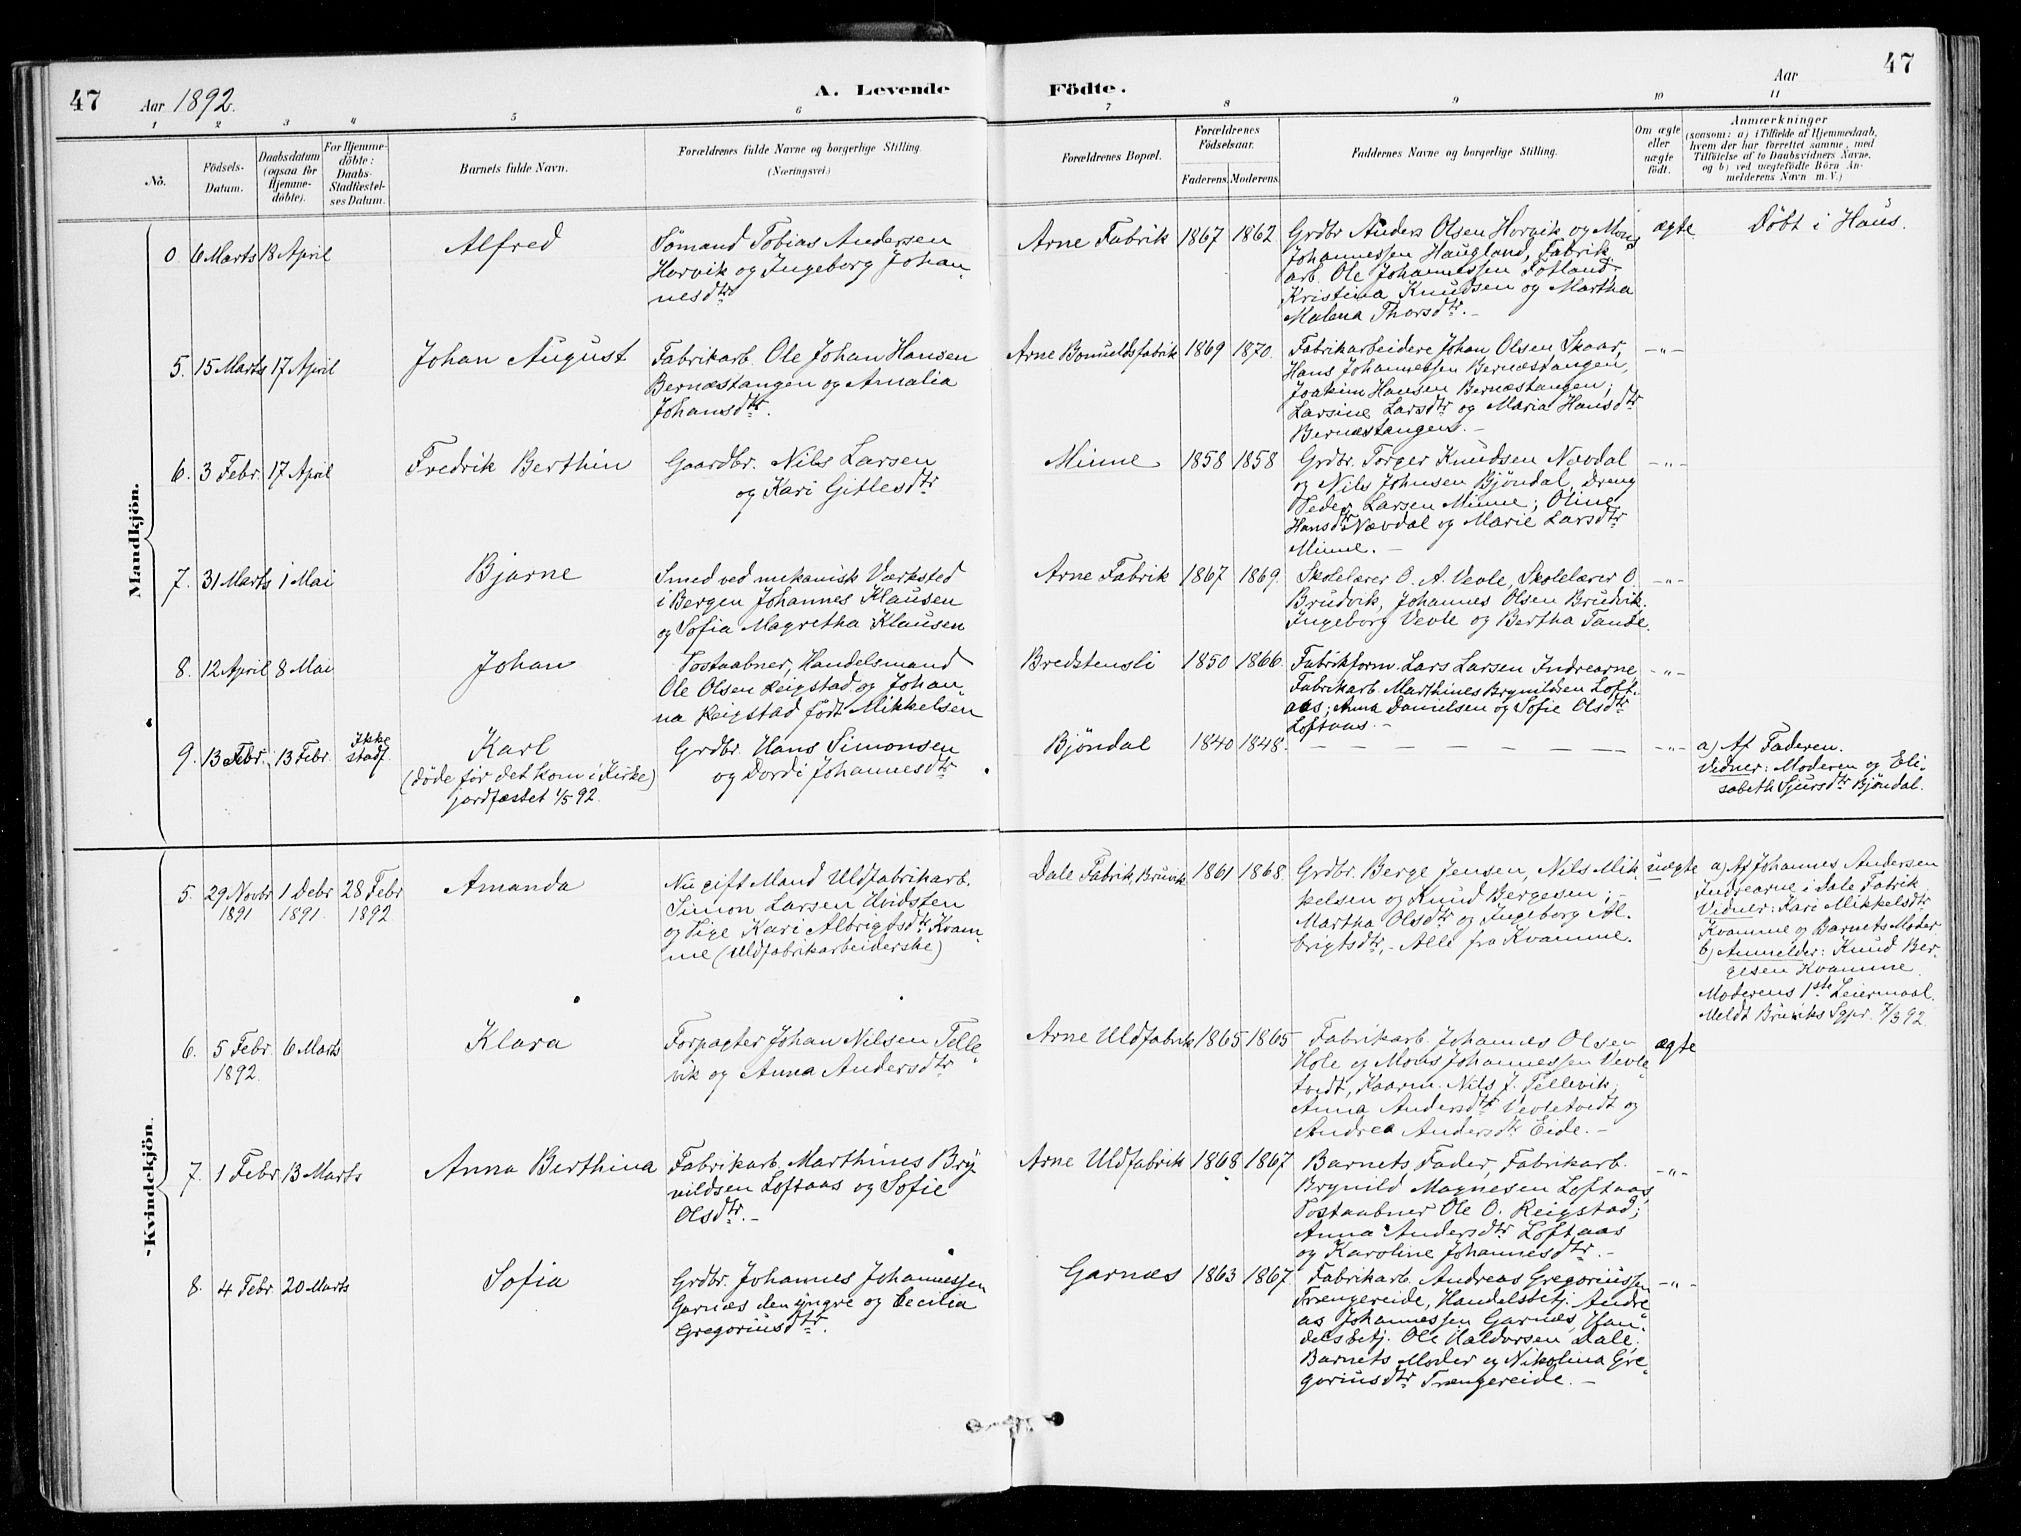 47
Aar 1892.
A. Levende
Födte.
Aar
47
1
2
3
4
5
6
7
8
9
10
11
No.
Födsels-
Datum.
Daabsdatum
(ogsaa for
Hjemme-
döbte).
For Hjemme-
döbte:
Daabs-
Stadfæstel-
ses Datum.
Barnets fulde Navn.
Forældrenes fulde Navne og borgerlige Stilling.
(Næringsvei.)
Forældrenes Bopæl.
Forældrenes
Födselsaar.
Faderens. Moderens.
Faddernes Navne og borgerlige Stilling.
Om ægte
eller
uægte
födt.
Anmærkninger
(saasom: a) i Tilfælde af Hjemmedaab,
hvem der har forrettet samme, med
Tilföielse af to Daabsvidners Navne,
og b) ved uægtefödte Börn An-
melderens Navn m. V.)
Mandkjön.
0. 6 Marts 18 April
Alfred
Sömand Tobias Andersen
Horvik og Ingeborg Johan-
nesdtr
Arne Fabrik 1867 1862
Grdbr Anders Olsen Horvik og Mons
Johannessen Haugland, Fabrik-
arb. Ole Johannessen Totland;
Kristina Knudsen og Martha
Malena Thorsdtr. -
ægte
Döbt i Haus.
5. 15 Marts 17 April
Johan August
Fabrikarb. Ole Johan Hansen
Bernæstangen og Amalia
Johansdtr.
Arne Bomuldsfabrik 1869 1870.
Fabrikarbeidere Johan Olsen Skaar,
Hans Johannessen Bernæstangen,
Joakim Hansen Bernæstangen;
Larsine Larsdtr og Maria Hansdtr
Bernæstangen. -
-"-
6. 3 Febr. 17 April
Fredrik Berthin
Gaardbr. Nils Larsen
og Kari Gitlesdtr
Minne 1858 1858
Grdbr. Torger Knudsen Nævdal
og Nils Johnsen Bjöndal, Dreng
Peder Larsen Minne; Oline
Hansdtr Nævdal og Marie Larsdtr
Minne. -
-"-
7. 31 Marts 1 Mai
Bjarne
Smed ved mekanisk Værksted
i Bergen Johannes Klausen
og Sofia Magretha Klausen
Arne Fabrik 1867 1869.
Skolelærer O. A. Vevle, Skolelærer O.
Brudvik, Johannes Olsen Brudvik.
Ingeborg Vevle og Bertha Tande.
-"-
8. 12 April 8 Mai
Johan
Postaabner, Handelsmand
Ole Olsen Reigstad og Johan-
na Reigstad födt Mikkelsen
Bredstensli 1850 1866.
Fabrikform. Lars Larsen Indrearne
Fabrikarb. Marthines Brynildsen Loft-
aas; Anna Danielsen og Sofie Olsdtr
Loftaas. -
-"-
9. 13 Febr. 13 Febr.
Ikke
stadf.
Karl
(döde för det kom i Kirke)
jordfæstet 1/5 92.
Grdbr. Hans Simonsen
og Dordi Johannesdtr
Bjöndal 1840 1848.
-"-
a) Af Faderen.
Vidner: Moderen og Eli-
sabeth Sjursdtr Bjöndal.
Kvindekjön.
5. 29 Novbr 1 Debr 28 Febr
1891 1891. 1892
Amanda
Nu gift Mand Uldfabrikarb.
Simon Larsen Hvidsten
og Pige Kari Albrigtsdtr Kvam-
me (Uldfabrikarbeiderske)
Dale Fabrik, Bruvik 1861 1868.
Grdbr. Berge Jensen, Nils Mik-
kelsen og Knud Bergesen; -
Martha Olsdtr og Ingeborg Al-
brigtsdtr, - Alle fra Kvamme.
uægte
a) Af Johannes Andersen
Indrearne i Dale Fabrik
Vidner: Kari Mikkelsdtr
Kvamme og Barnets Moder.
b) Anmelder: Knud Ber-
gesen Kvamme.
Moderens 1ste Leiermaal.
Meldt Bruviks Sgpr. 7/3 92.
6. 5 Febr. 6 Marts
1892.
Klara
Forpagter Johan Nilsen Telle-
vik og Anna Andersdtr
Arne Uldfabrik 1865 1865
Fabrikarb. Johannes Olsen
Hole og Mons Johannessen Vevle-
tvedt, Kaarm. Nils J. Tellevik;
Anna Andersdtr Vevletvedt og
Andrea Andersdtr Eide. -
ægte
7. 1 Febr 13 Marts
Anna Berthina
Fabrikarb. Marthines Bry-
nildsen Loftaas og Sofie
Olsdtr. -
Arne Uldfabrik 1868 1867
Barnets Fader, Fabrikarb.
Brynild Magnesen Loftaas,
Postaabner Ole O. Reigstad;
Anna Andersdtr Loftaas
og Karoline Johannesdtr. -
-"-
8. 4 Febr. 20 Marts
Sofia
Grdbr. Johannes Johannessen
Garnæs den yngre og Cecilia
Gregoriusdtr.
Garnæs 1863 1867.
Fabrikarb. Andreas Gregoriussen
Trængereide, Handelsbetj. Andre-
as Johannessen Garnæs, Han-
delsbetj. Ole Haldorsen Dale,
Barnets Moder og Nikolina Gre-
goriusdtr Trængereide. -
-"-